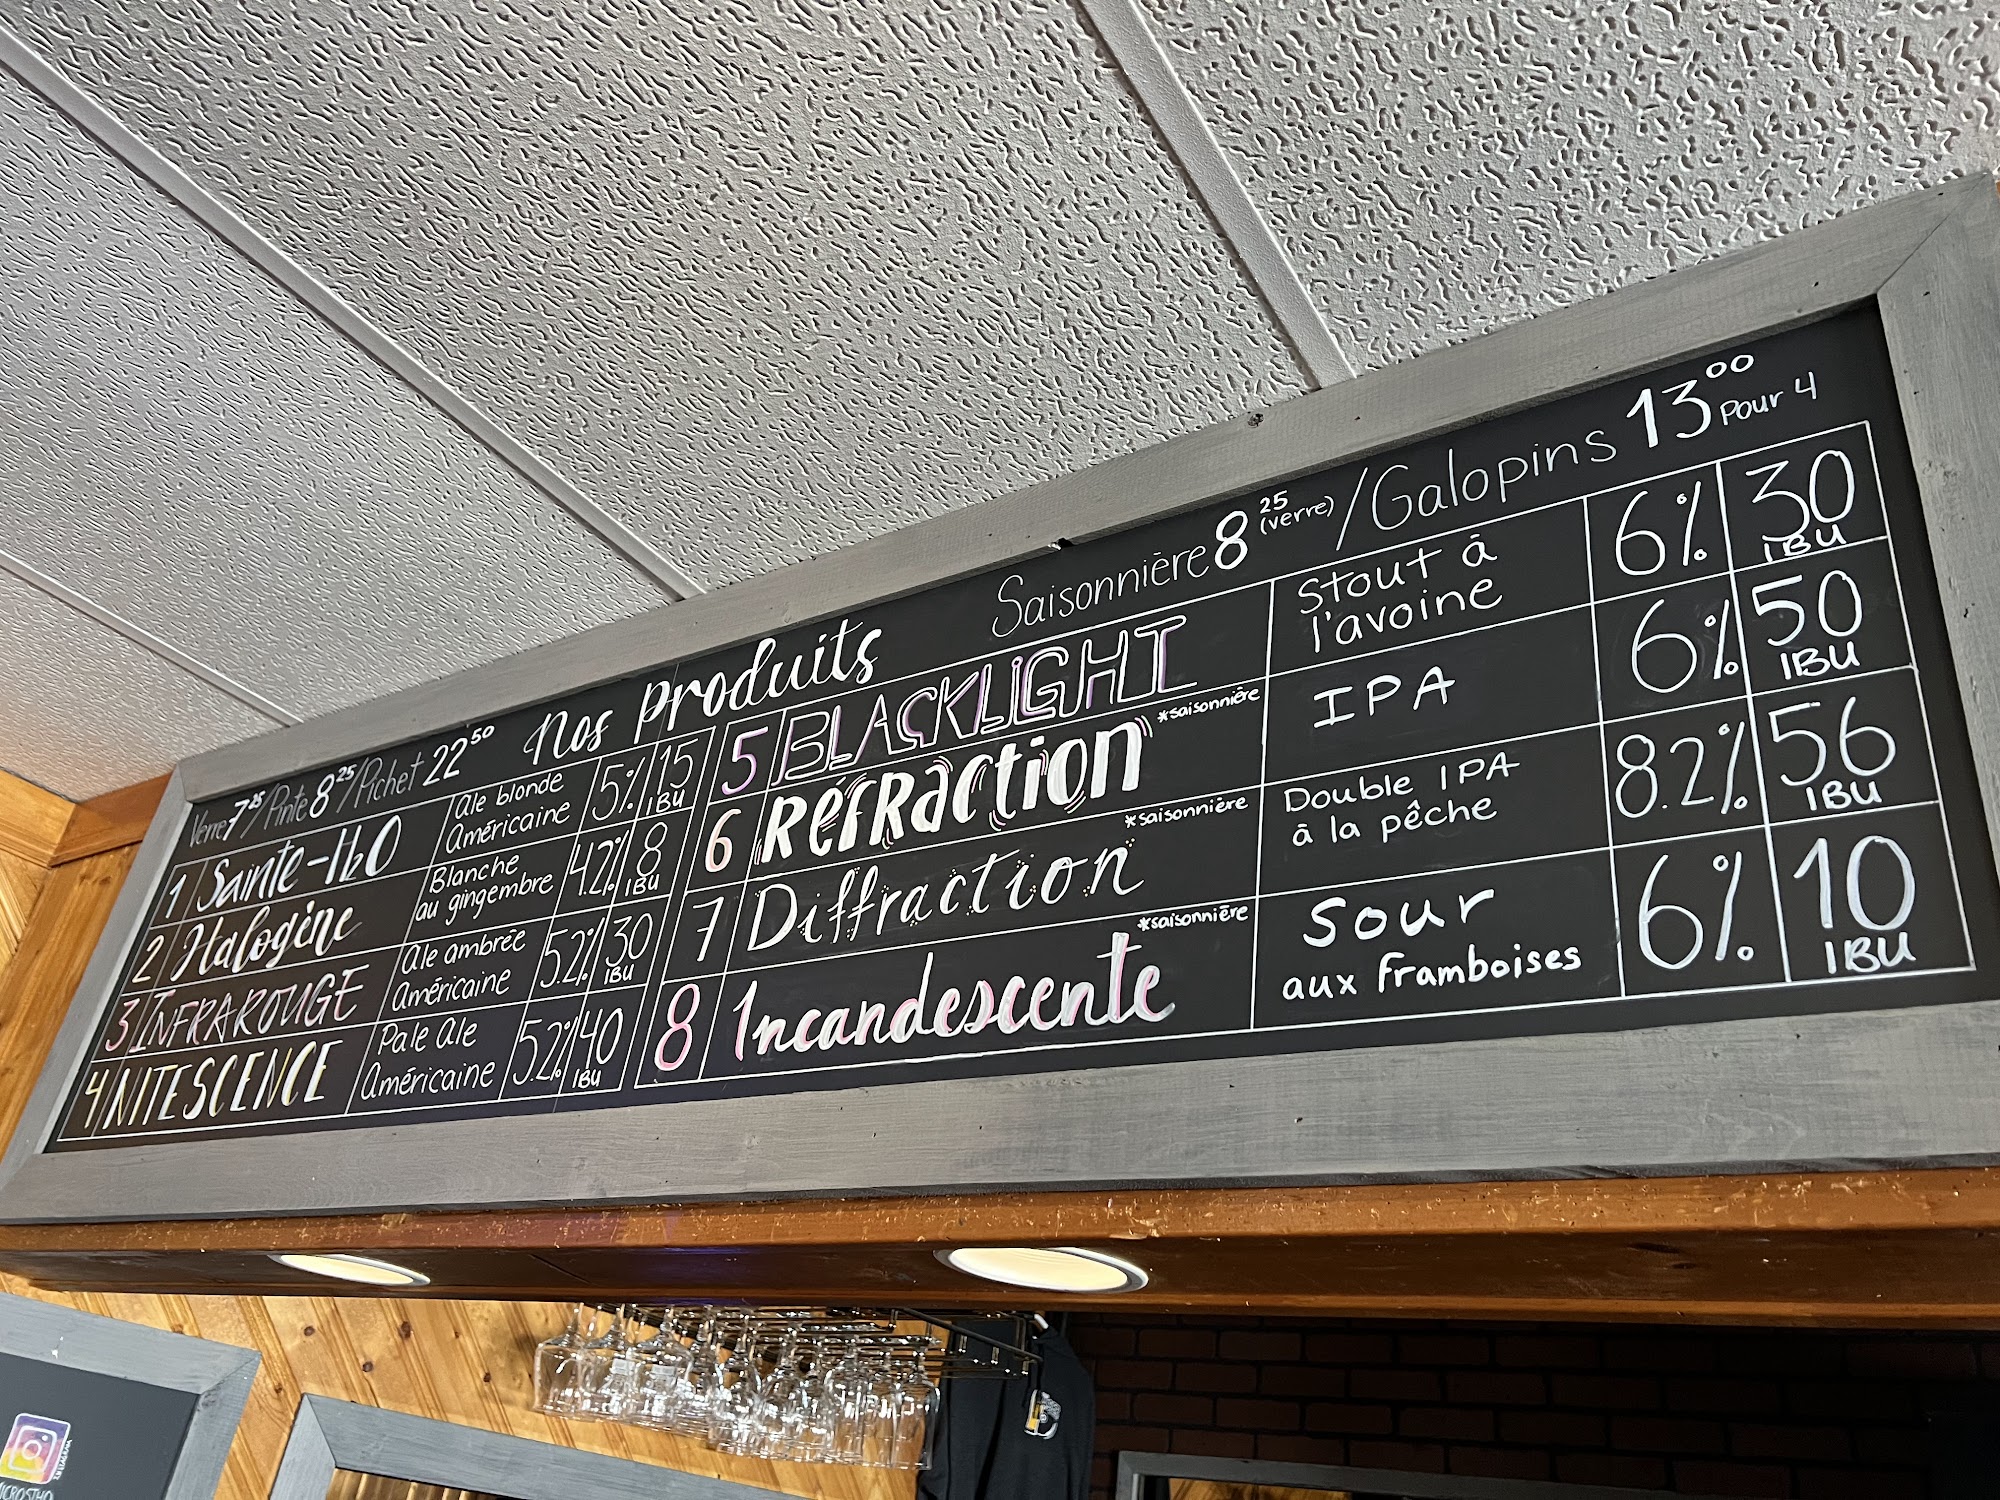 Verre 7²⁵/Pinte 8²⁵/Pichet 22⁵⁰
Nos produits
Saisonnière 8²⁵ (verre) / Galopins 13⁰⁰ pour 4
1 Sainte-H₂O
Ale blonde
Américaine
5%
15
IBU
2 Halogène
Blanche
au gingembre
4.2%
8
IBU
3 INFRAROUGE
Ale ambrée
Américaine
5.2%
30
IBU
4 NITESCENCE
Pale Ale
Américaine
5.2%
40
IBU
5 BLACKLIGHT
Stout à
l'avoine
6%
30
IBU
6 Réfraction
*saisonnière
IPA
6%
50
IBU
7 Diffraction
*saisonnière
Double IPA
à la pêche
8.2%
56
IBU
8 Incandescente
*saisonnière
Sour
aux framboises
6%
10
IBU